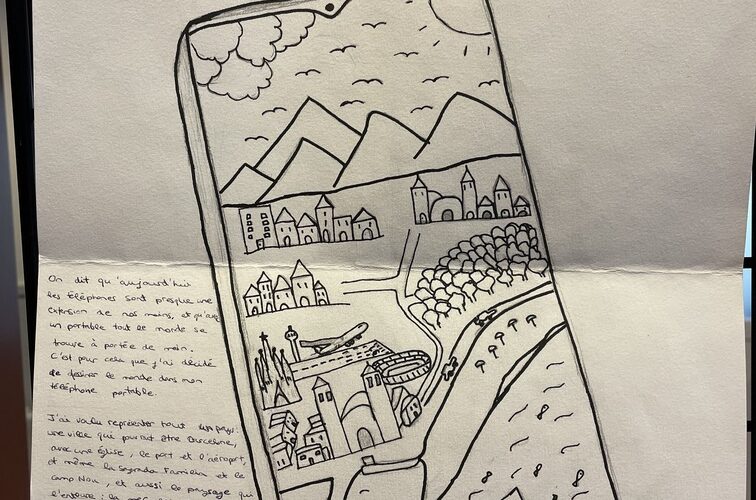 On dit qu'aujourd'hui
les téléphones sont presque une
extension de nos mains, et qu'avec
un portable tout le monde se
trouve à portée de main.
C'est pour cela que j'ai décidé
de dessiner le monde dans mon
téléphone portable.
J'ai voulu représenter tout un pays:
une ville qui pourrait être Barcelone,
avec une église, le port et l'aéroport,
et même la Sagrada Familia et le
Camp Nou, et aussi le paysage qui
l'entoure : la